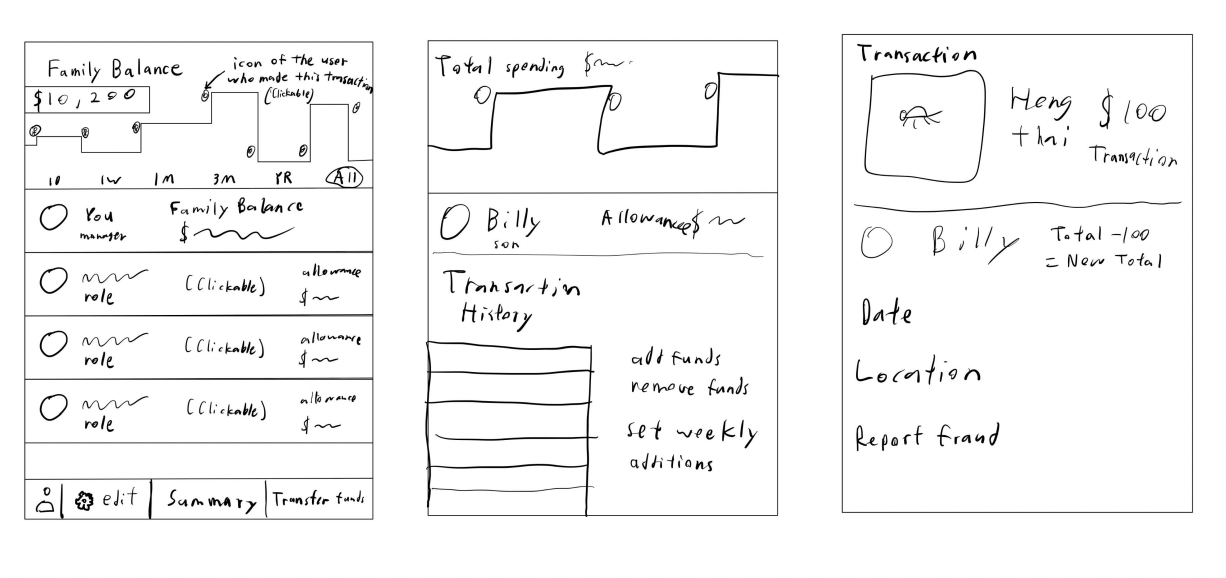 Family Balance
icon of the user
who made this trnsaction
(Clickable)
$10,200
1D 1W 1M 3M YR All
You
manager
Family Balance
$
role
(Clickable)
allowance
$
role
(Clickable)
allowance
$
role
(Clickable)
allowance
$
edit
Summary
Transfer funds
Total spending $
Billy
son
Allowance $
Transaction
History
add funds
remove funds
set weekly
additions
Transaction
Heng
thai
$100
Transaction
Billy
Total -100
= New Total
Date
Location
Report fraud